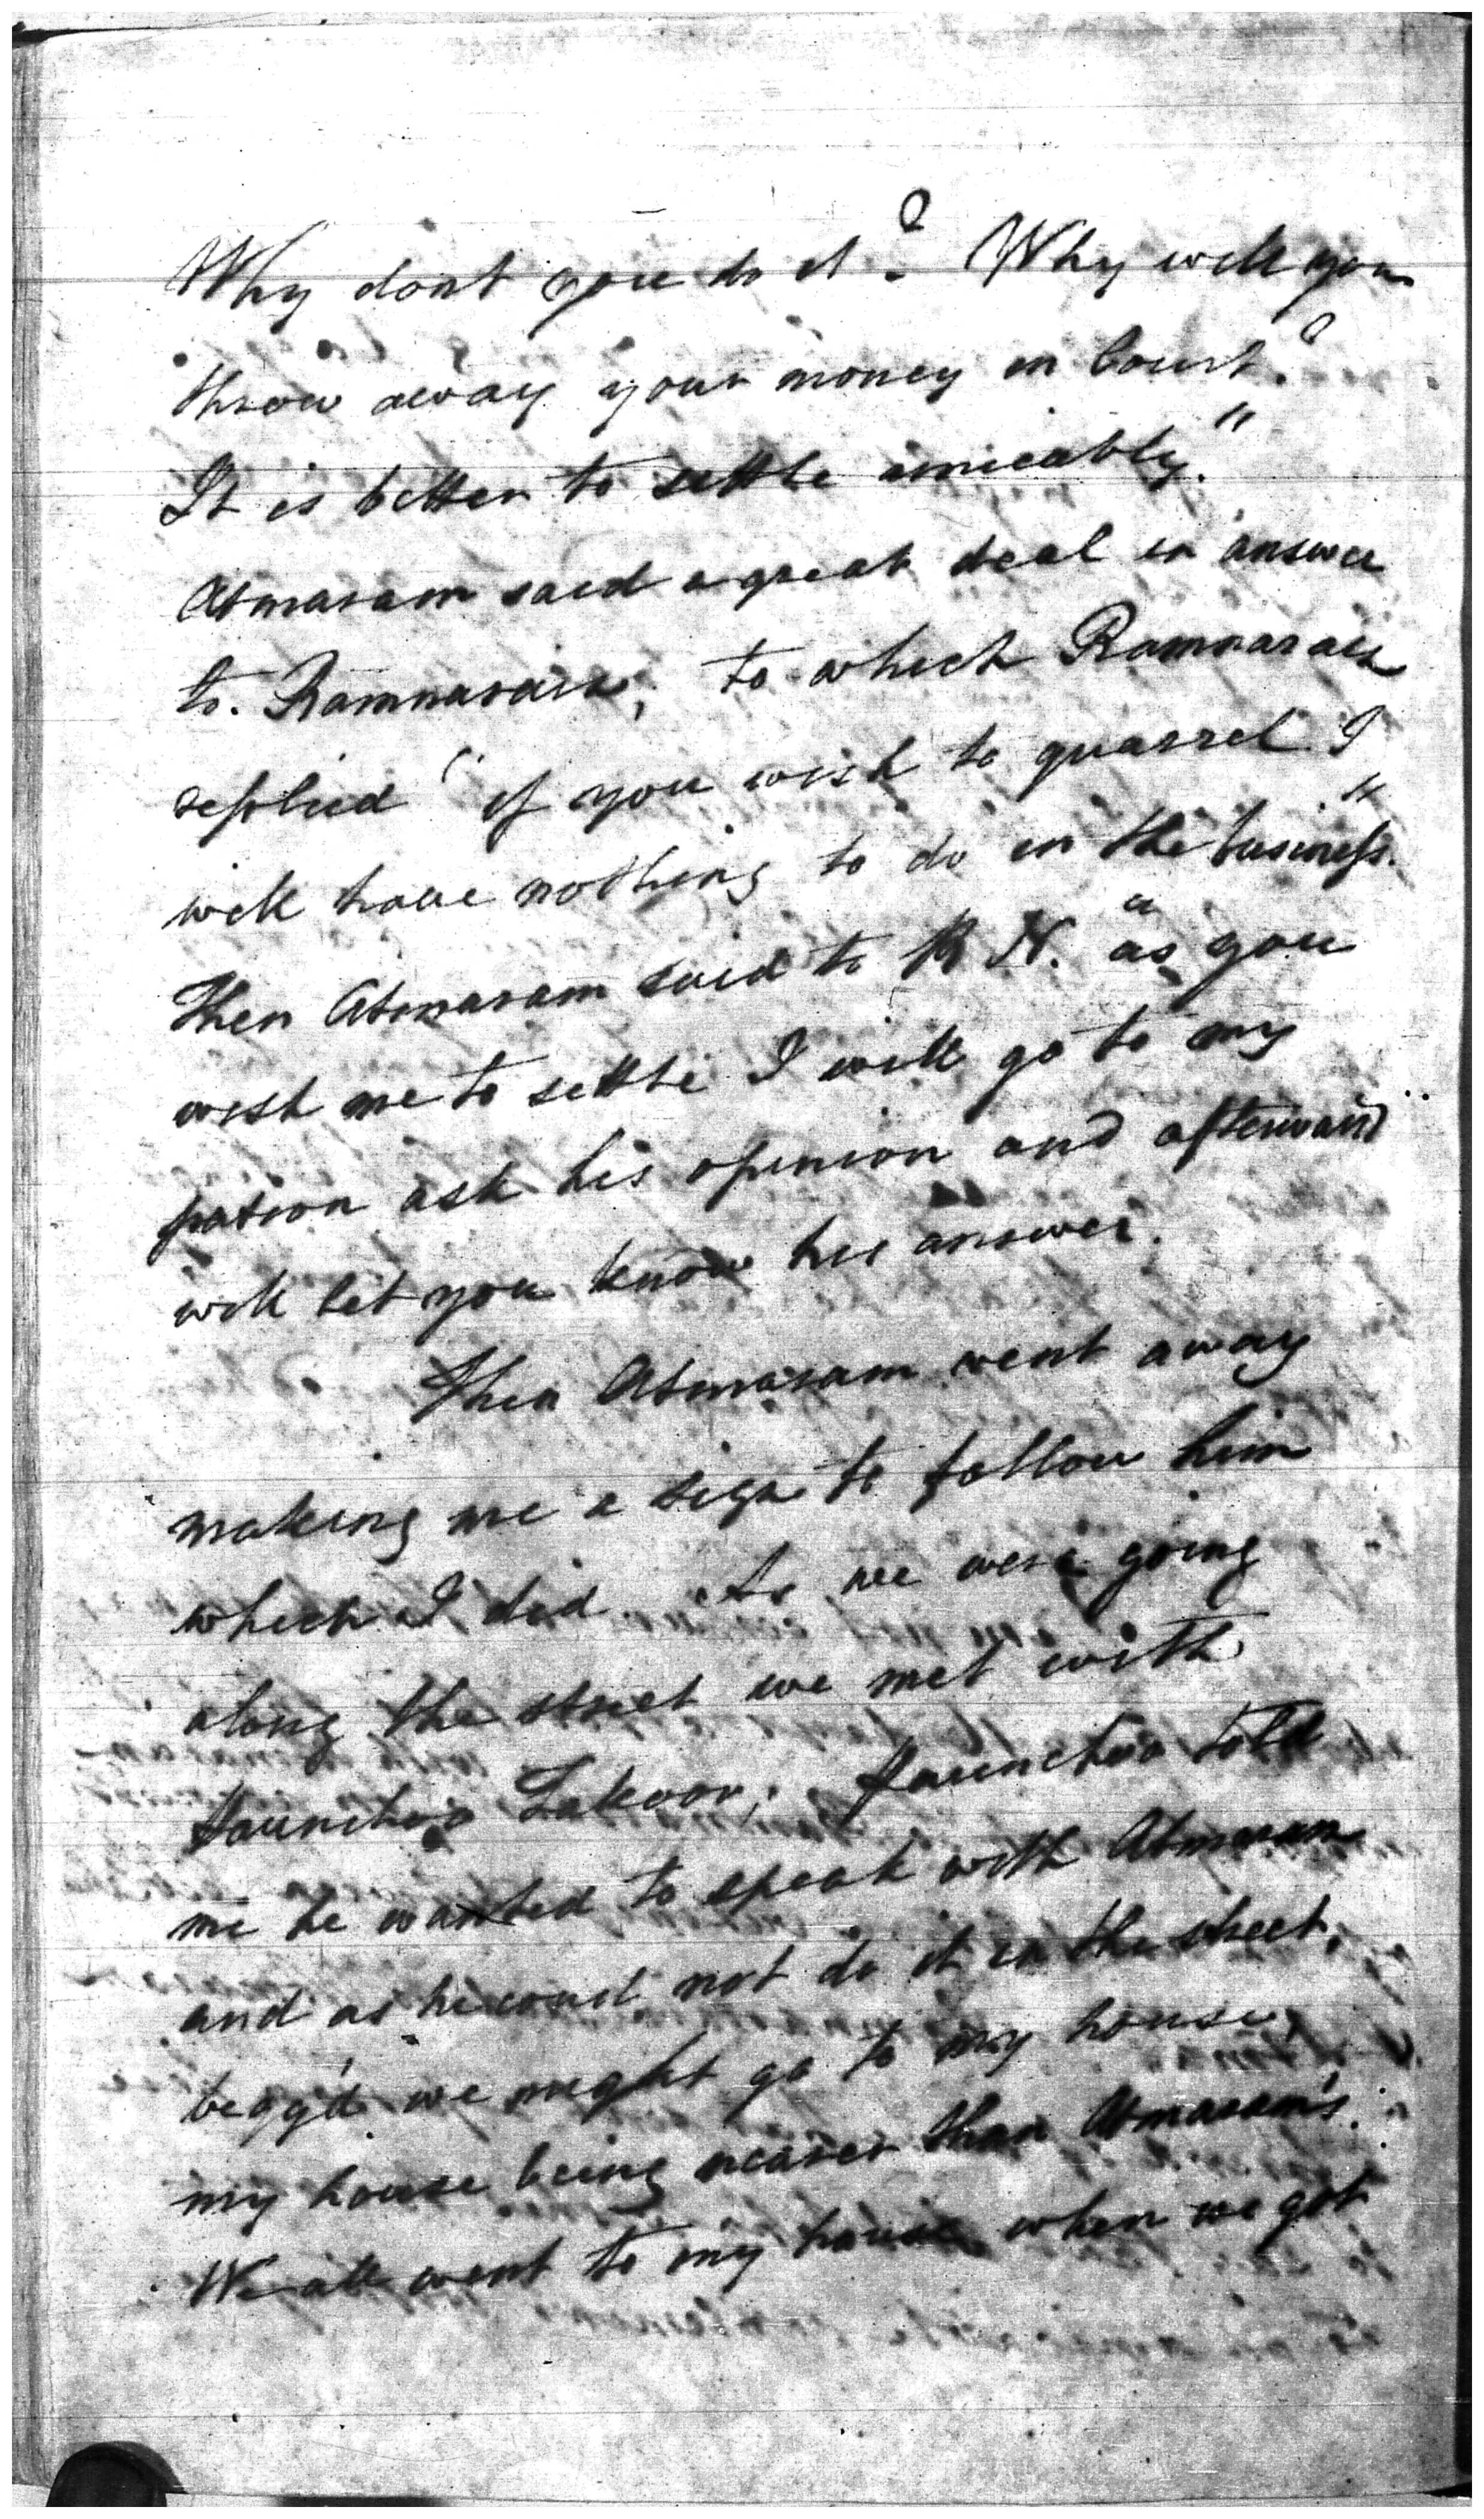 Why dont you do it? Why will you
throw away your money in Court?
It is better to settle amicably."
Atmaram said a great deal in answer
to Ramnarain, to which Ramnarain
replied "if you wish to quarrel I
will have nothing to do in the business."
Then Atmaram said to R N. "as you
wish me to settle I will go to my
patron ask his opinion and afterward
will let you know his answer.
Then Atmaram went away
making me a sign to follow him
which I did. As we were going
along the street we met with
Takoor; told
me he wanted to speak with Atmaram
and as he coud not do it in the street,
begg'd we might go to my house,
my house being nearer than Atmaram's.
We all went to my house, when we got